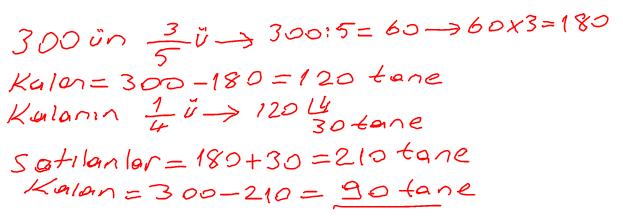 300 ün 3/5 ü → 300:5 = 60 → 60x3=180
Kalan = 300 - 180 = 120 tane
Kalanın 1/4 ü → 120 | 4
30 tane
Satılanlar = 180 + 30 = 210 tane
Kalan = 300 - 210 = 90 tane